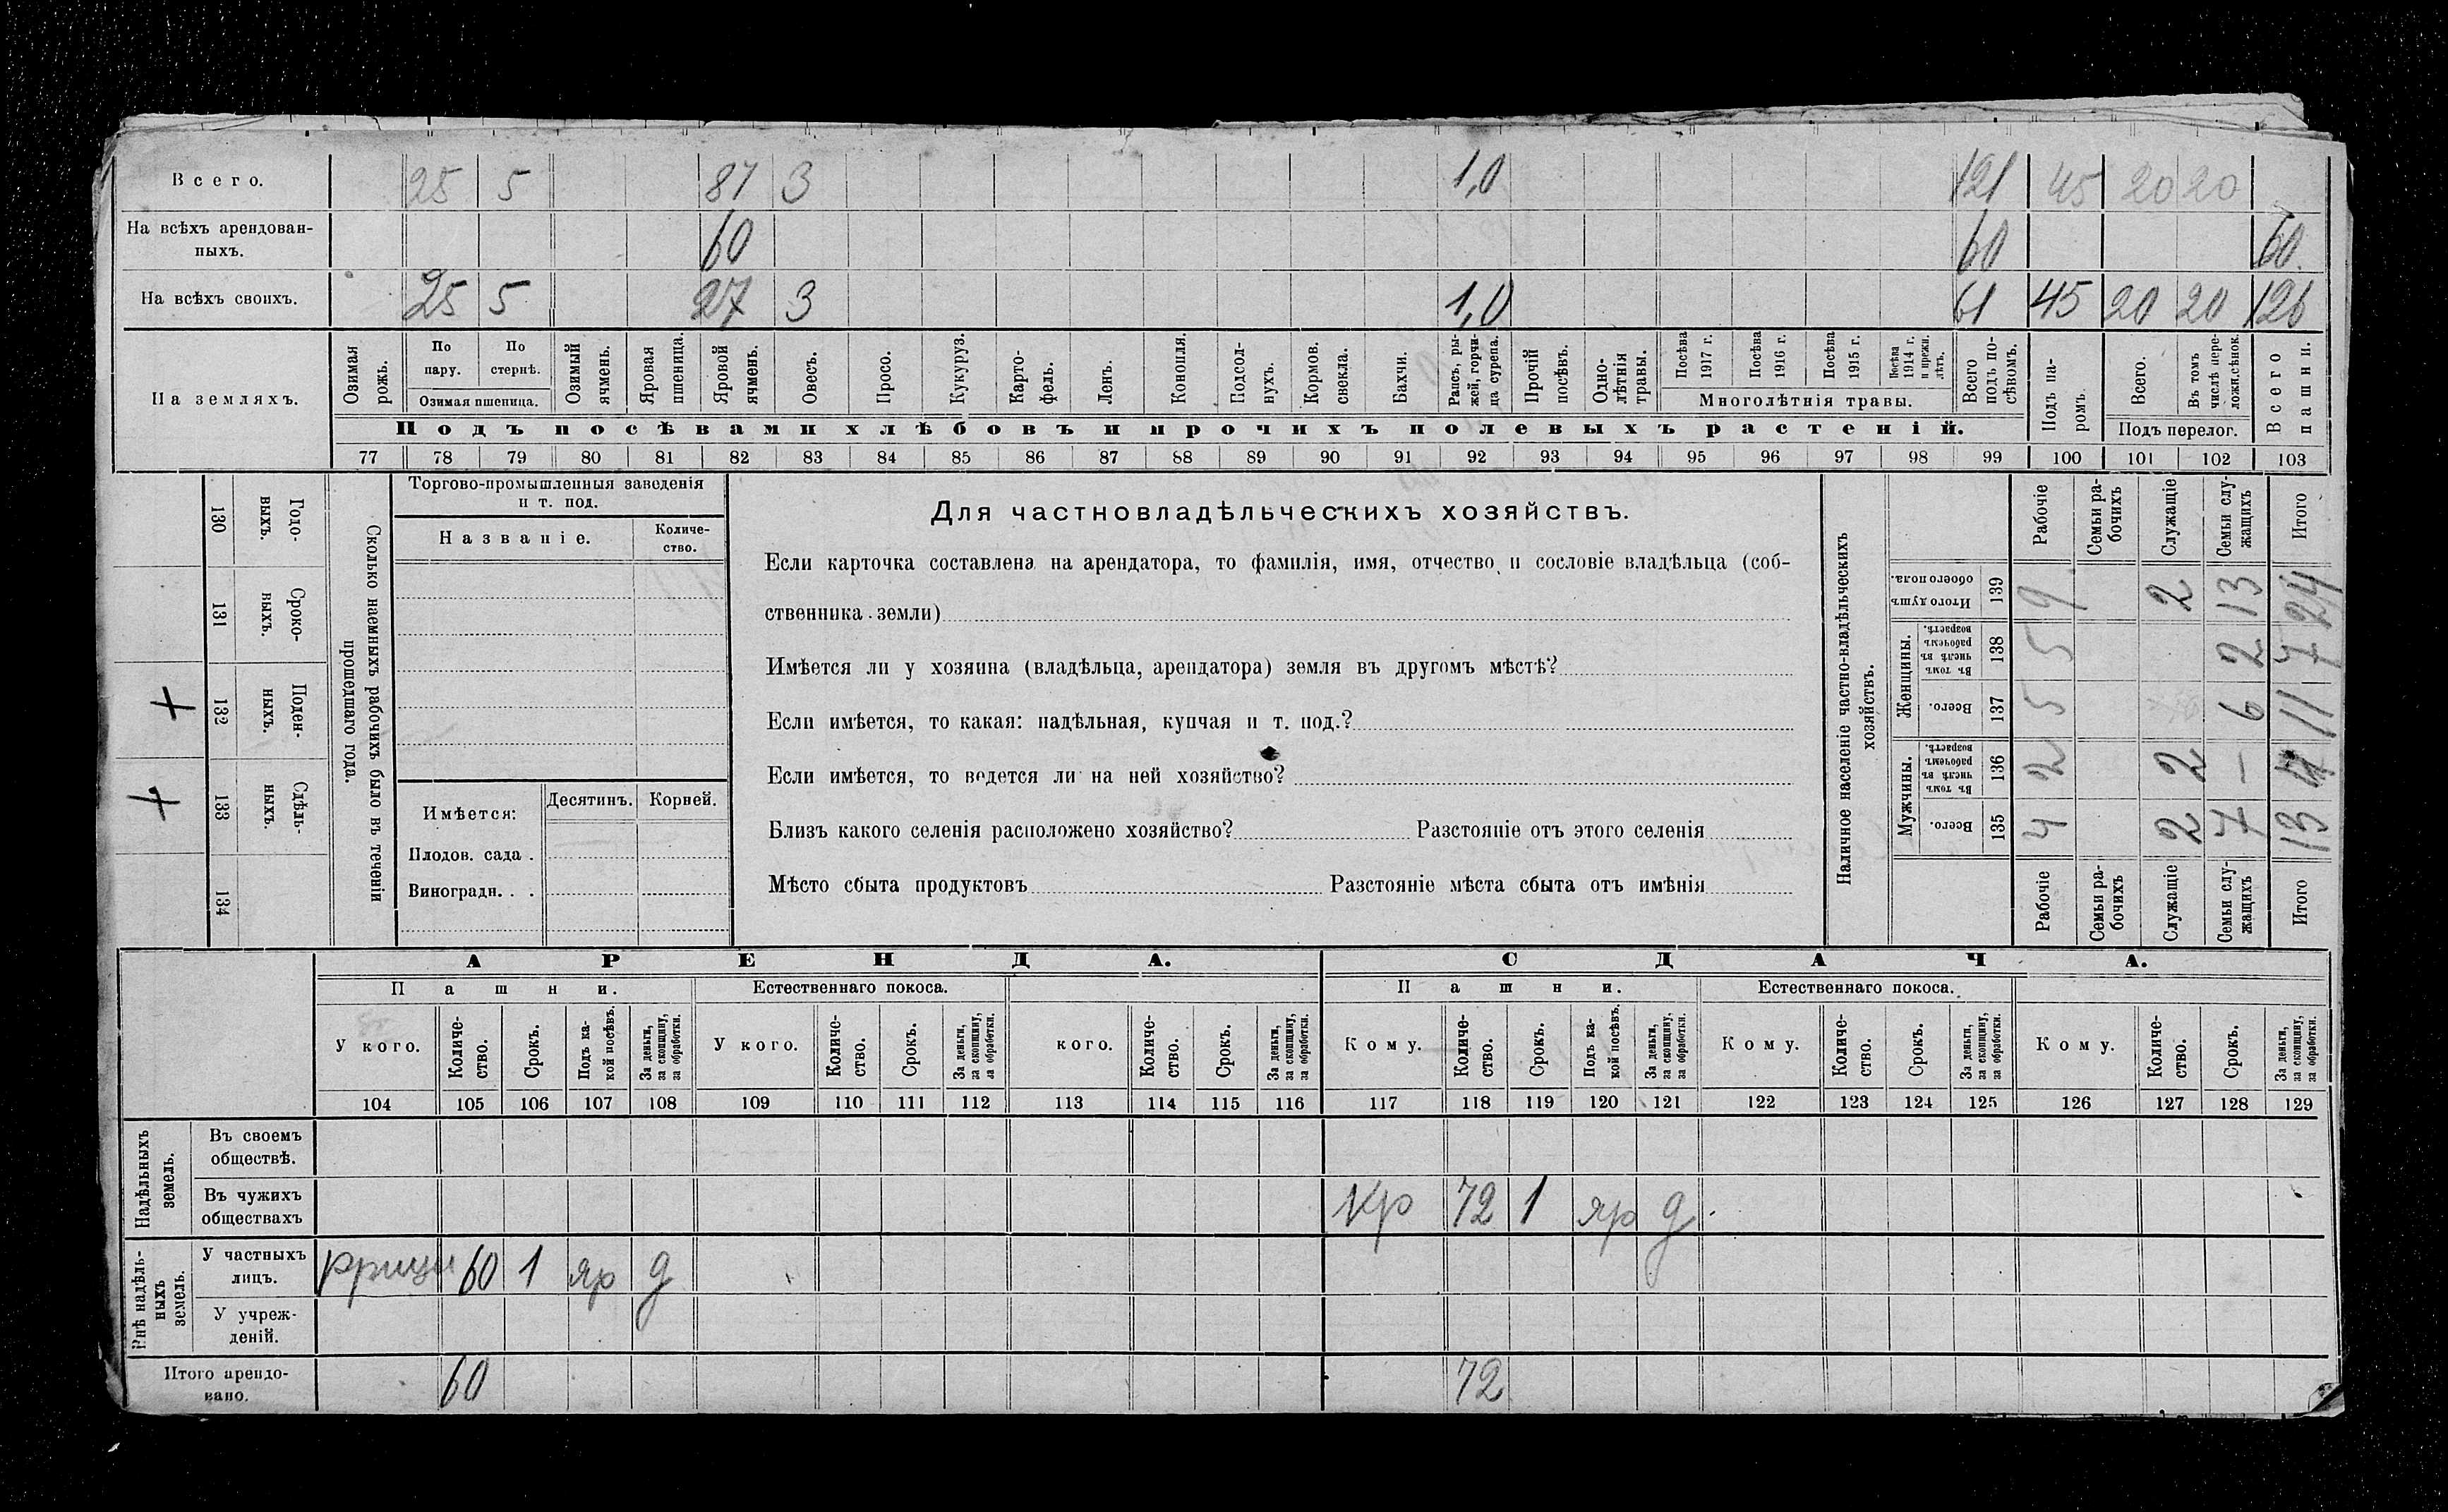 Всего. 25 5 87 3 1,0 121 45 20 20
На всѣхъ арендован-
ныхъ. 60 60 60
На всѣхъ своихъ. 25 5 27 3 1,0 61 45 20 20 126
На земляхъ.
Озимая рожь.
По пару.
По стернѣ.
Озимая пшеница.
Озимый ячмень.
Яровая пшеница.
Яровой ячмень.
Овесъ.
Просо.
Кукуруз.
Карто-
фель.
Ленъ.
Конопля.
Подсол-
нухъ.
Кормов. свекла.
Бахчи.
Рапсъ, ры-
жей, горчи-
ца сурепа.
Прочій посѣвъ.
Одно-
лѣтнія травы.
Посѣва 1917 г.
Посѣва 1916 г.
Посѣва 1915 г.
Посѣва 1914 г. и прежн. лѣтъ.
Многолѣтнія травы.
Всего подъ по-
сѣвомъ.
Подъ па-
ромъ.
Всего.
Въ томъ числѣ пере-
ложн.сѣнок.
Подъ перелог.
Всего пашни.
Подъ посѣвами хлѣбовъ и прочихъ полевыхъ растеній.
77 78 79 80 81 82 83 84 85 86 87 88 89 90 91 92 93 94 95 96 97 98 99 100 101 102 103
Годо-
выхъ.
130
Сроко-
выхъ.
131
Поден-
ныхъ.
132 +
Сдѣль-
ныхъ.
133 +
134
Сколько наемныхъ рабочихъ было въ теченіи
прошедшаго года.
Торгово-промышленныя заведенія
и т. под.
Названіе.
Количе-
ство.
Имѣется:
Десятинъ. Корней.
Плодов. сада .
Виноградн. . .
Для частновладѣльческихъ хозяйствъ.
Если карточка составлена на арендатора, то фамилія, имя, отчество и сословіе владѣльца (соб-
ственника земли)
Имѣется ли у хозяина (владѣльца, арендатора) земля въ другомъ мѣстѣ?
Если имѣется, то какая: надѣльная, купчая и т. под.?
Если имѣется, то ведется ли на ней хозяйство?
Близъ какого селенія расположено хозяйство? Разстояніе отъ этого селенія
Мѣсто сбыта продуктовъ Разстояніе мѣста сбыта отъ имѣнія
Наличное населеніе частно-владѣльческихъ
хозяйствъ.
Рабочіе
Семьи ра-
бочихъ
Служащіе
Семьи слу-
жащихъ
Итого
Итого душъ обоего пола.
139 9 2 13 24
Женщины.
Въ томъ числѣ въ рабочемъ возрастѣ.
138 5 2 7
Всего.
137 5 6 11
Мужчины.
Въ томъ числѣ въ рабочемъ возрастѣ.
136 2 2 – 4
Всего.
135 4 2 7 13
Рабочіе
Семьи ра-
бочихъ
Служащіе
Семьи слу-
жащихъ
Итого
АРЕНДА. СДАЧА.
Пашни. Естественнаго покоса. Пашни. Естественнаго покоса.
У кого.
Количе-
ство.
Срокъ.
Подъ ка-
кой посѣвъ.
За деньги, за скопщину, за обработки.
У кого.
Количе-
ство.
Срокъ.
За деньги, за скопщину, за обработки.
кого.
Количе-
ство.
Срокъ.
За деньги, за скопщину, за обработки.
Кому.
Количе-
ство.
Срокъ.
Подъ ка-
кой посѣвъ.
За деньги, за скопщину, за обработки.
Кому.
Количе-
ство.
Срокъ.
За деньги, за скопщину, за обработки.
Кому.
Количе-
ство.
Срокъ.
За деньги, за скопщину, за обработки.
104 105 106 107 108 109 110 111 112 113 114 115 116 117 118 119 120 121 122 123 124 125 126 127 128 129
Надѣльныхъ земель.
Въ своемъ
обществѣ.
Въ чужихъ
обществахъ
Кр 72 1 яр д.
Внѣ надѣль-
ныхъ земель.
У частныхъ
лицъ.
60 1 яр д
У учреж-
деній.
Итого арендо-
вано. 60 72